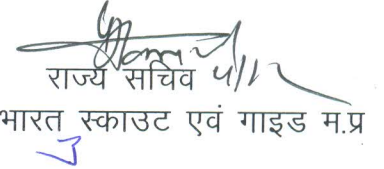 राज्य सचिव 4/12
भारत स्काउट एवं गाइड म.प्र